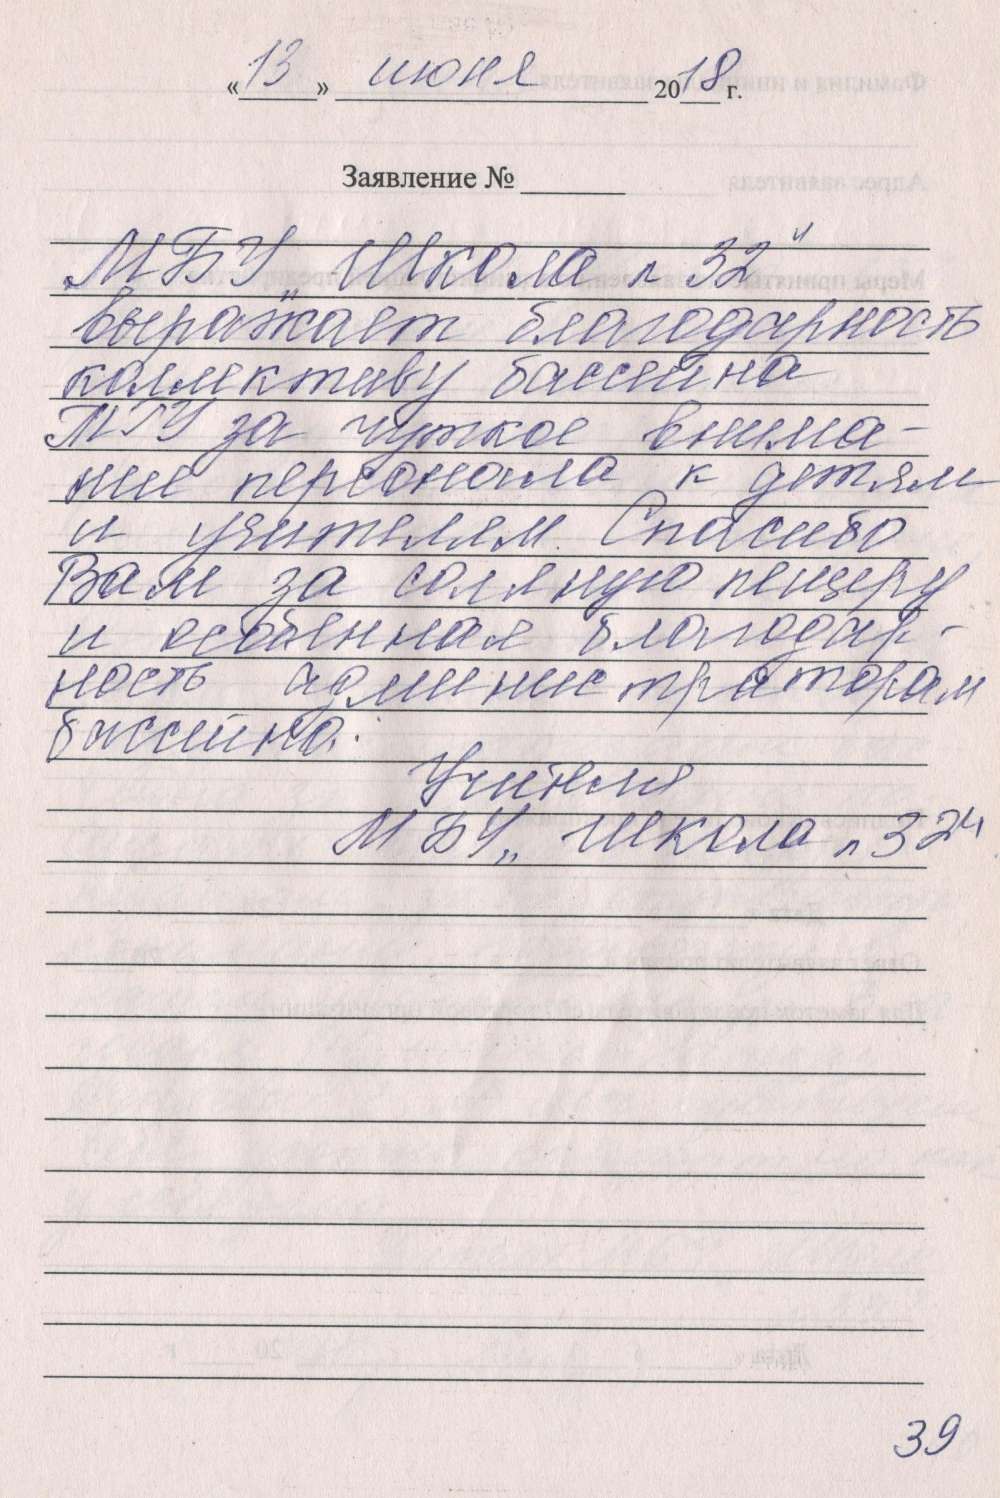 «13» июня 2018 г.
Заявление №
МБУ "Школа № 32"
выражает благодарность
коллективу бассейна
ТГУ за чуткое внима-
ние персонала к детям
и учителям. Спасибо
Вам за соляную пещеру
и особенная благодар-
ность администраторам
бассейна.
Учителя
МБУ „Школа № 32"
39